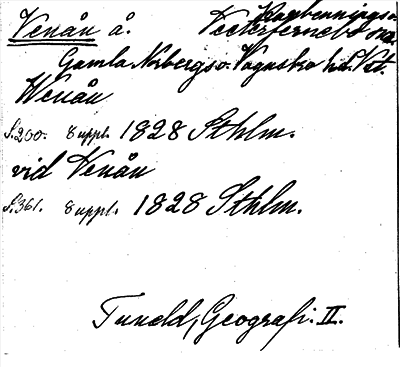 Venån å. Karbennings o.
Västerfernebo sna.
Gamla Norbergs o. Vagnsbro hd. Vst.
Wenån
S.200. 8 uppl. 1828 Sthlm.
vid Venån
S.361. 8 uppl. 1828 Sthlm.
Tuneld, Geografi. II.